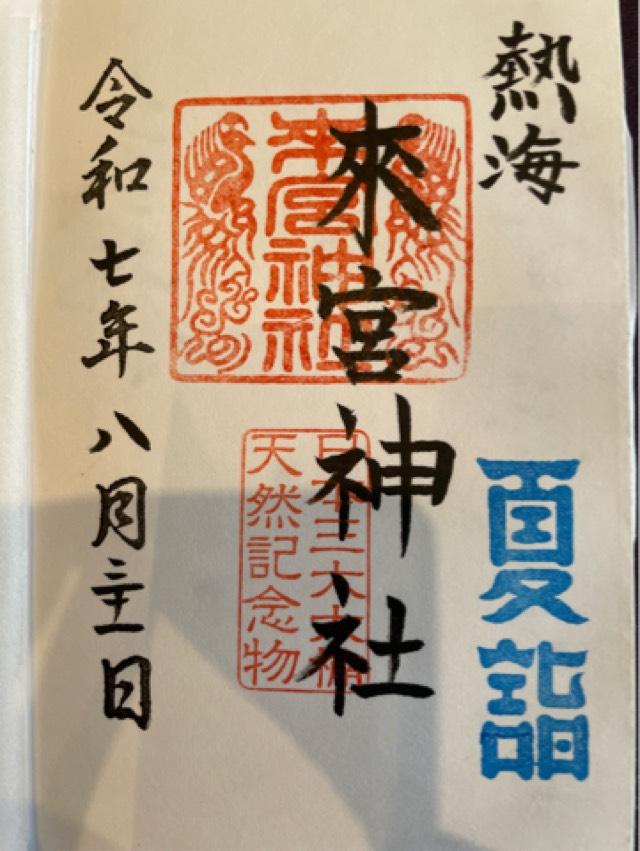 熱海
夏詣
來宮神社
來宮神社
日本三大大楠
天然記念物
令和七年八月 日